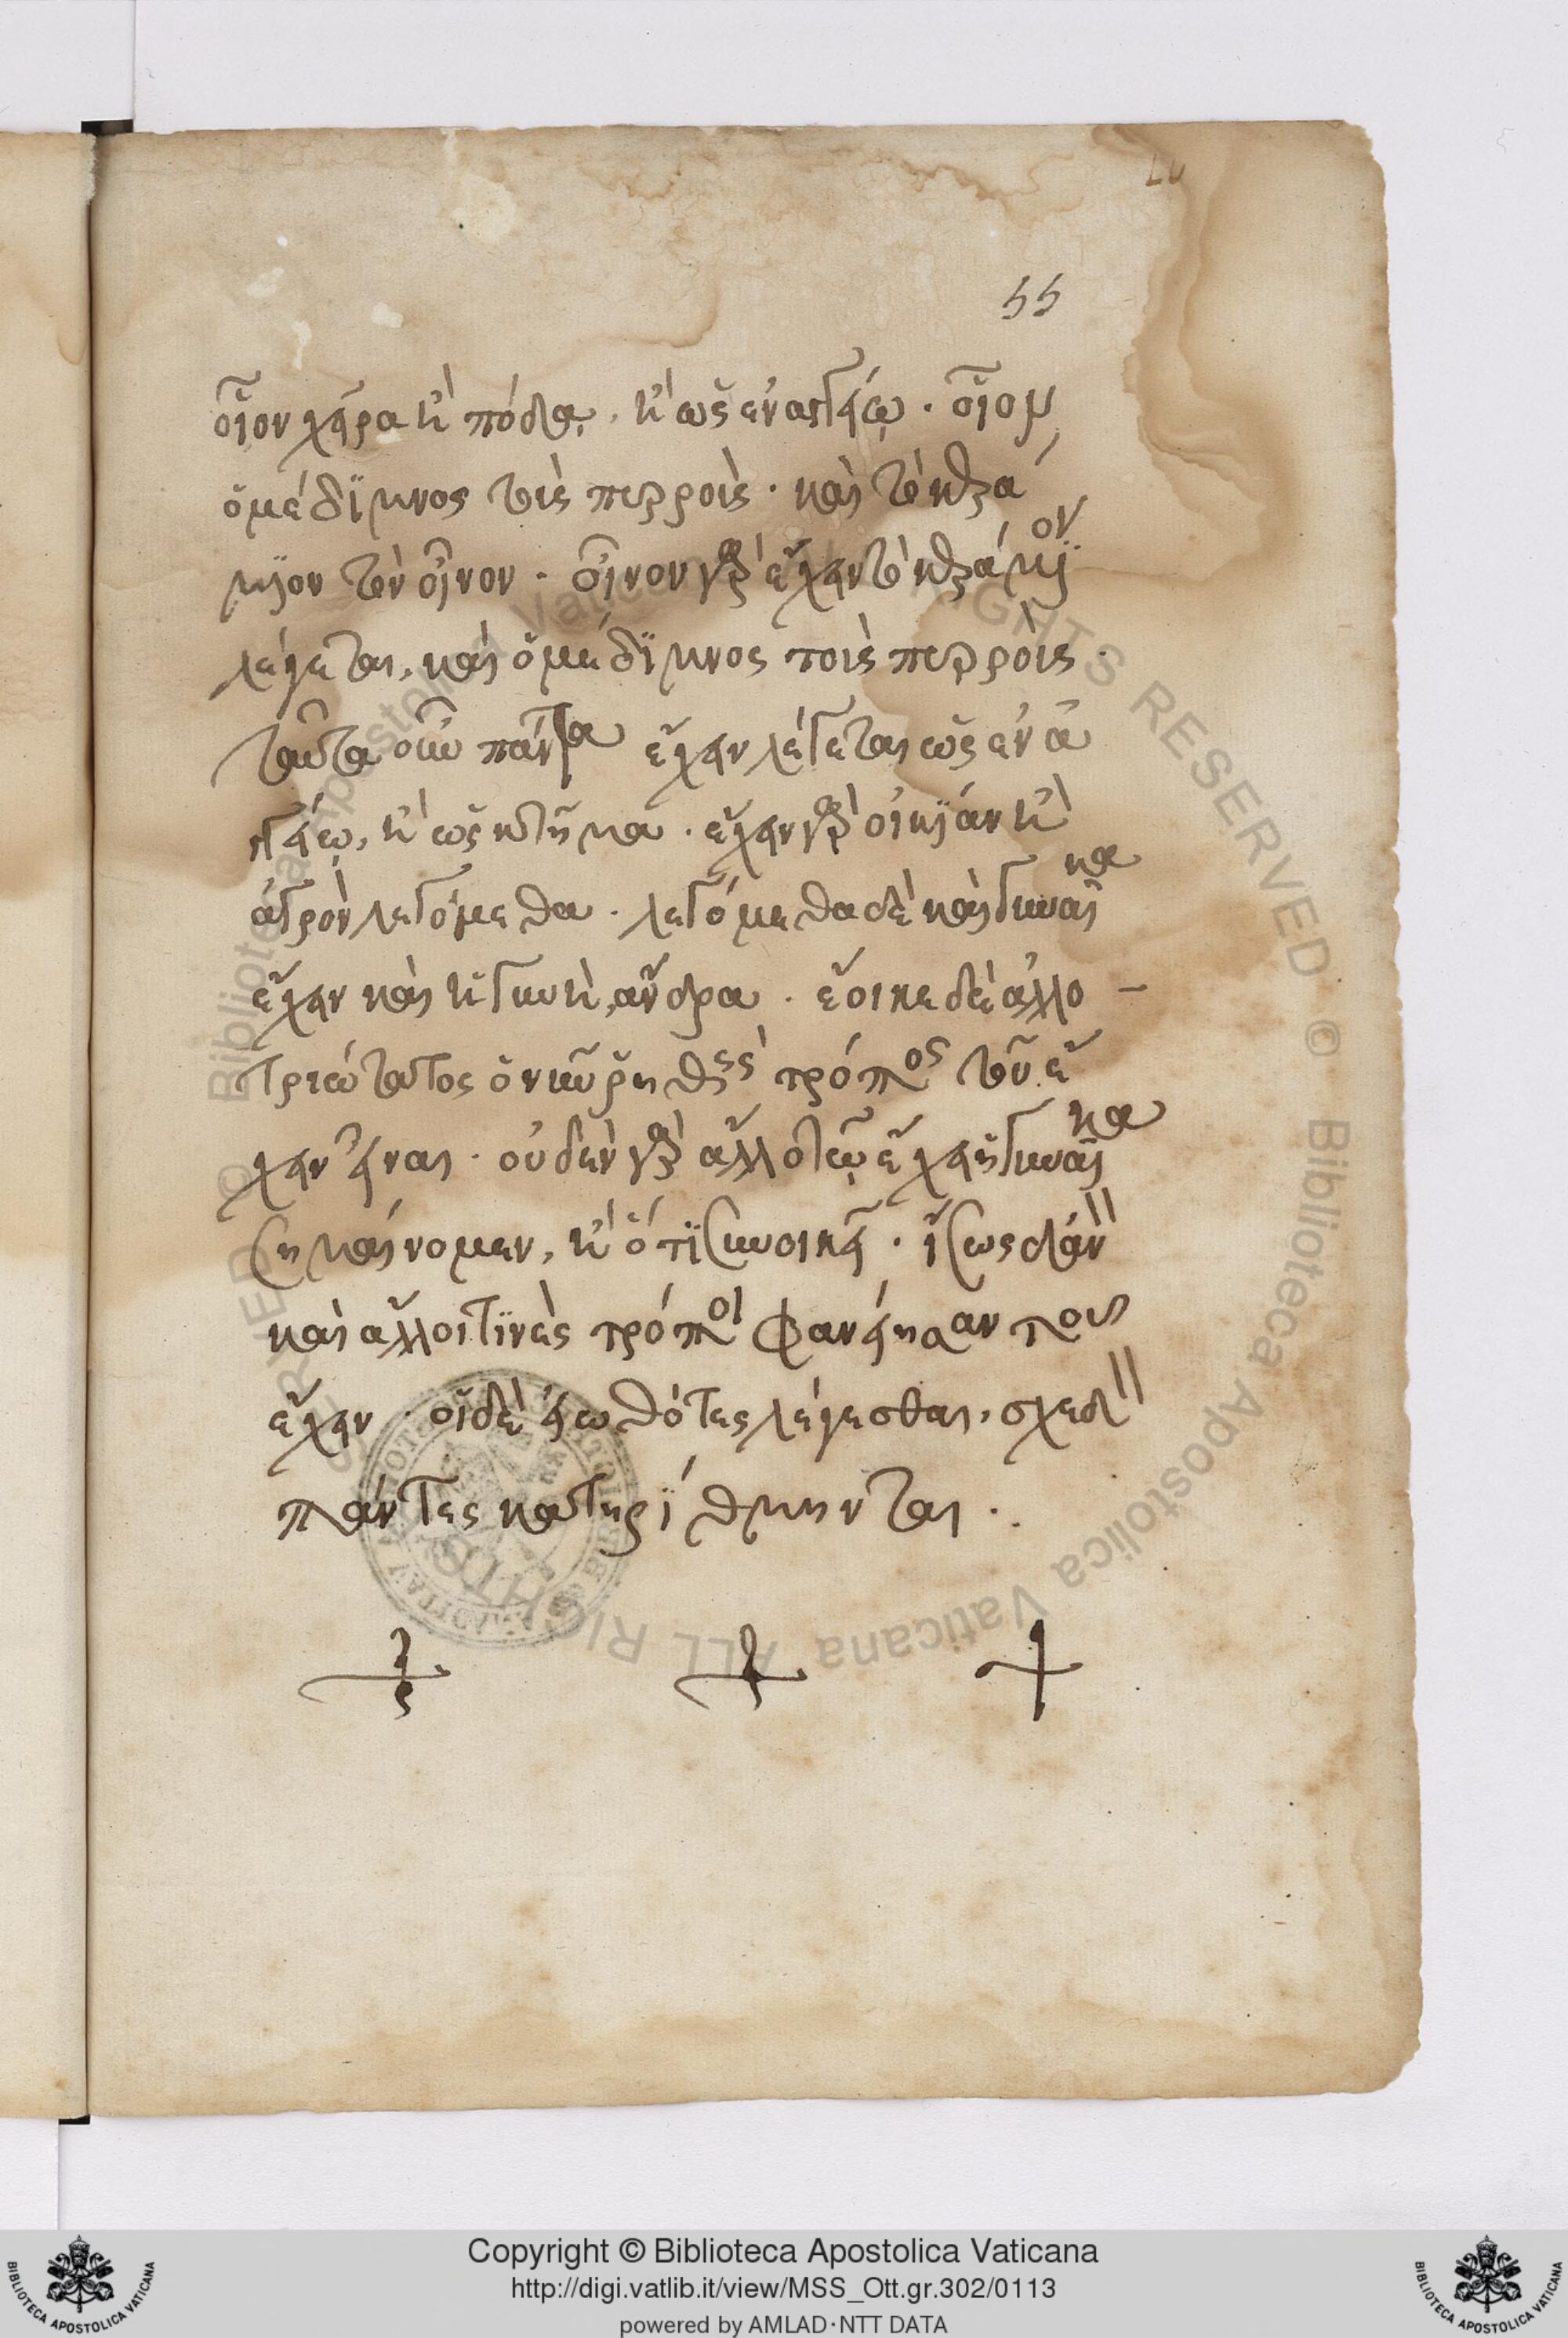 55
οἷον χεῖρα κ̀ πόδα, κ̀ ὡς ἐν ἀγγείῳ · οἷον
ὁ μέδϊμνος τοὺς πυρροὺς · καὶ τὸ κερά
μιον τὸν οἶνον · οἶνον γὰρ ἔχειν τὸ κεράμιον
λέγεται, καὶ ὁ μέδϊμνος τοὺς πυρροὺς ·
ταῦτα οὖν πάντα ἔχειν λέγεται ὡς ἐν ἀ
γγείῳ, κ̀ ὡς κτῆμα · ἔχειν γὰρ οἰκίαν κ̀
ἀγρὸν λεγόμεθα · λεγόμεθα δὲ καὶ γυναῖκα
ἔχειν καὶ ἡ γυνὴ, ἄνδρα · ἔοικε δὲ ἀλλο –
τριώτατος ὁ νῦν ῥηθεὶς τρόπος τοῦ ἔ
χειν εἶναι · οὐδὲν γὰρ ἄλλο τῷ ἔχειν γυναῖκα
σημαίνομεν, κ̀ ὅτϊ συνοικεῖ · ἴσως δ' ἂν
καὶ ἄλλοι τϊνὲς τρόποι φανείησαν τοῦ
ἔχειν · οἱ δὲ εἰωθότες λέγεσθαι, σχεδὸν
πάντες κατηρίθμηνται ·.
Copyright © Biblioteca Apostolica Vaticana
http://digi.vatlib.it/view/MSS_Ott.gr.302/0113
powered by AMLAD·NTT DATA
BIBLIOTECA APOSTOLICA VATICANA
BIBLIOTECA APOSTOLICA VATICANA